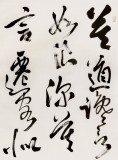 莫道讒言
如浪深莫
言遷客似